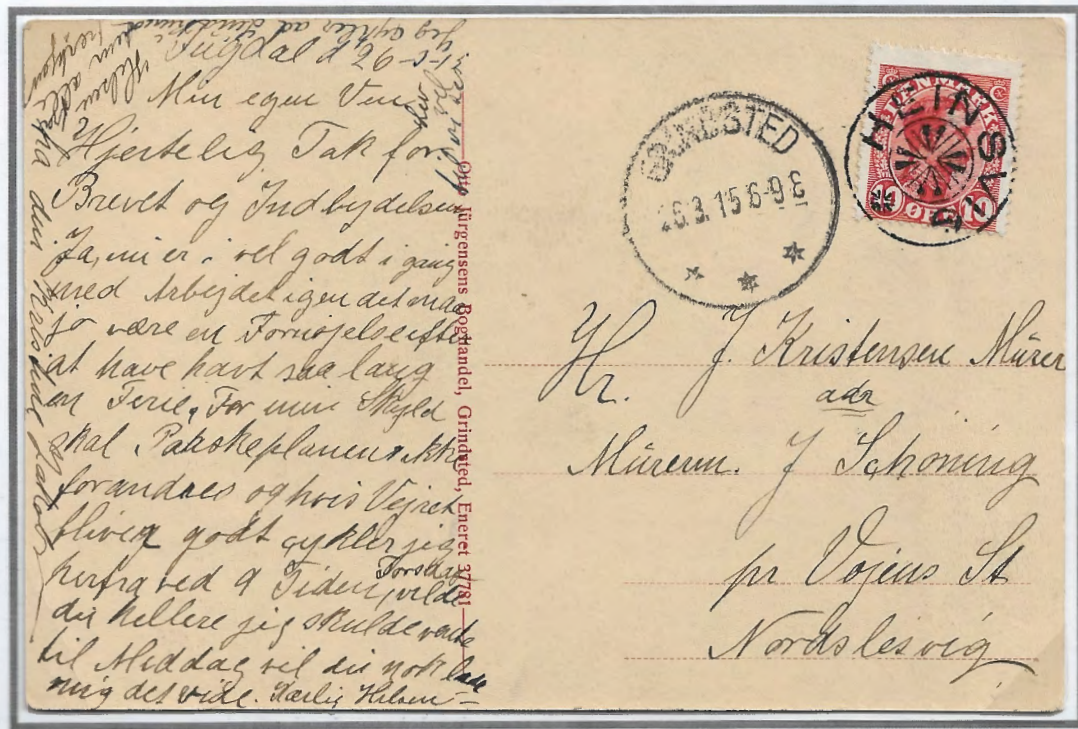 Min egen Ven
Hjertelig Tak for
Brevet og Indbydelsen
Ja, mi er i vel godt i gang
med Arbejdet igen det maa
jo være en Fornøjelse efter
at have havt saa lang
en Ferie, For min Skyld
skal Paaskeplanen ikke
forandres og hvis Vejret
bliver godt cykler jeg
herfra ved 9 Tiden, vilde
Torsdag
du hellere jeg skulde vente
til Middag vil du nok lade
mig det vide. Kærlig Hilsen
fra din Kristine
Otto Jürgensens Boghandel, Grindsted, Eneret 37781
GRINDSTED
26.3.15 6-9 E
HEINSVIG
DANMARK
10 ØRE 10
Hr. J. Kristensen Mürer
adr
Mürerm. J Schöning
pr Vojens St
Nordslesvig